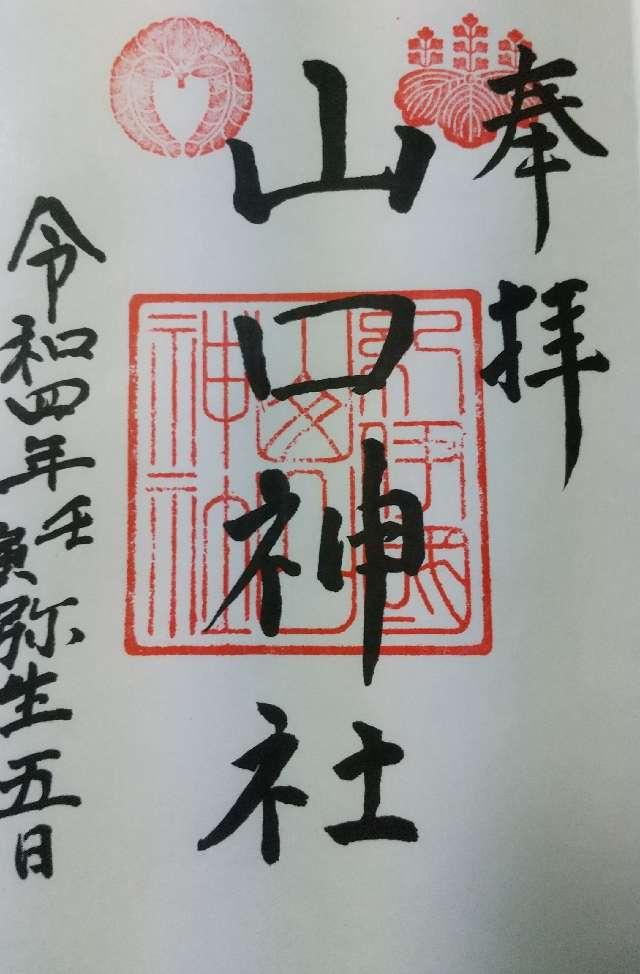 奉拝
山口神社
令和四年壬寅弥生五日